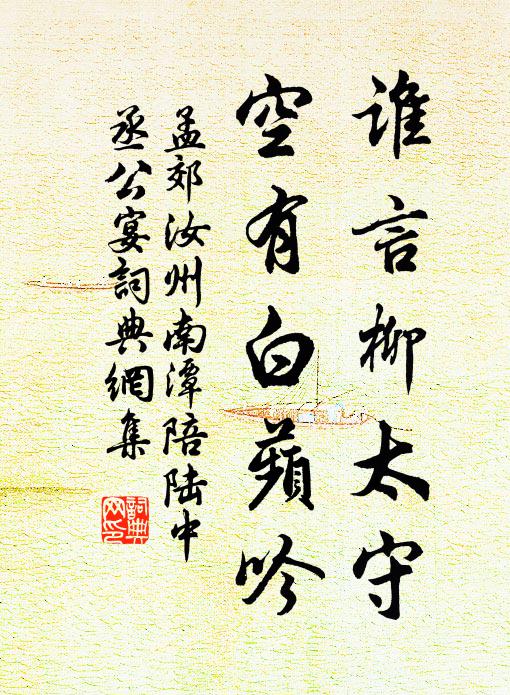 谁言柳太守
空有白蘋吟
孟郊汝州南潭陪陆中
丞公宴詞典網集
詞典
网印